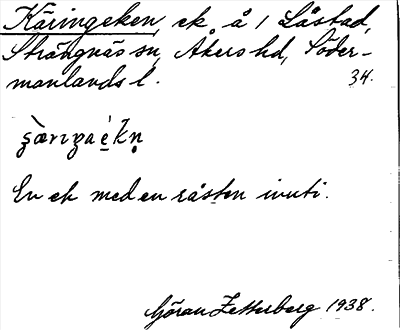 Käringeken, ek å 1 Låstad,
Strängnäs sn, Åkers hd, Söder-
manlands l. 34.
En ek med en råsten inuti.
Göran Zetterberg 1938.